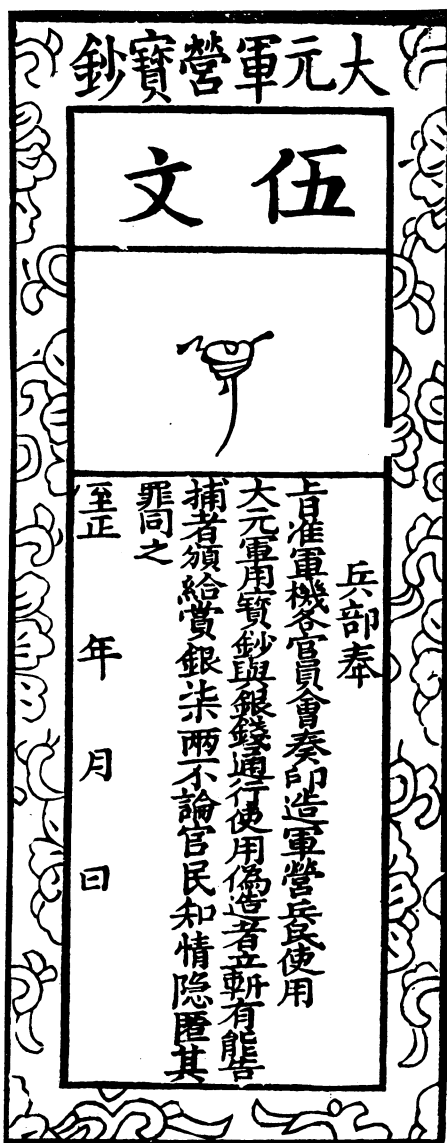 大元軍營寶鈔
伍文
兵部奉
上旨准軍機各官員會奏印造軍營兵民使用
大元軍用寶鈔與銀錢通行使用偽造者立斬有能告
捕者頒給賞銀柒兩不論官民知情隱匿其
罪同之
至正 年 月 日